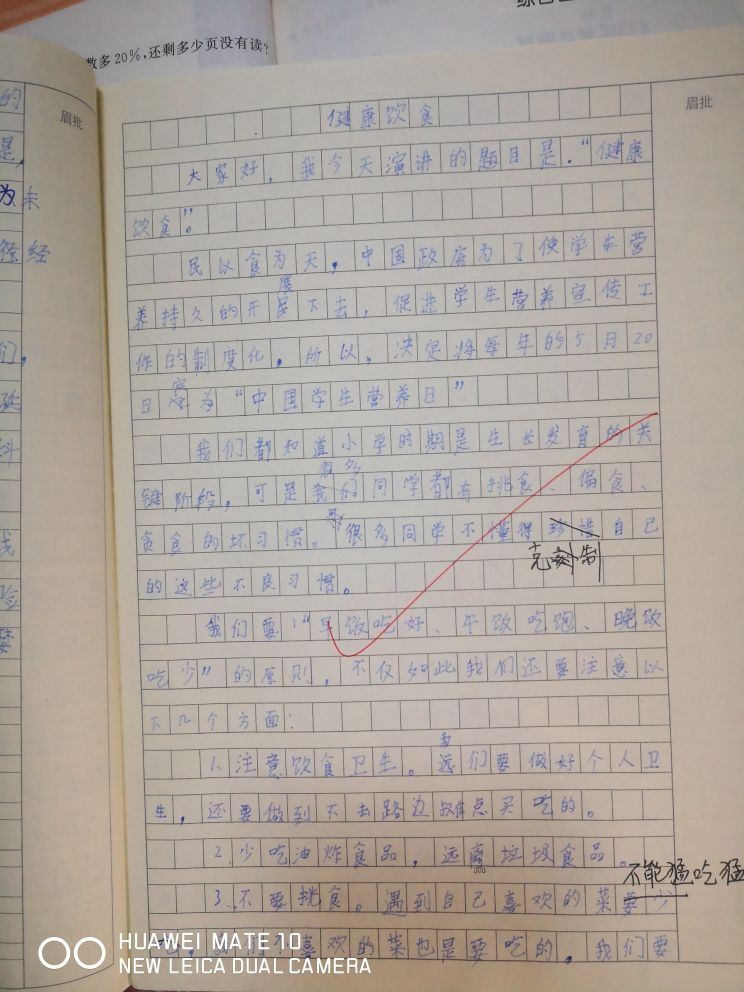 数多20%,还剩多少页没有读?
眉批
眉批
健康饮食
大家好，我今天演讲的题目是：“健康
饮食”。
民以食为天，中国政府为了使学生营
展
养持久的开民下去，促进学生营养宣传工
作的制度化。所以，决定将每年的5月20
日定为“中国学生营养日”
我们都知道小学时期是生长发育的关
很多
键阶段，可是我们同学都有挑食、偏食、
贪食的坏习惯。很多同学不懂得珍惜自己
克制
的这些不良习惯。
我们要“早饭吃好、午饭吃饱、晚饭
吃少”的原则，不仅如此我们还要注意以
下几个方面：
我
1、注意饮食卫生。远们要做好个人卫
生，还要做到不去路边摊点买吃的。
2、少吃油炸食品，远离垃圾食品。
300
不能猛吃猛
3、不要挑食。遇到自己喜欢的菜要少
喜欢的菜也是要吃的。我们要
HUAWEI MATE 10
NEW LEICA DUAL CAMERA